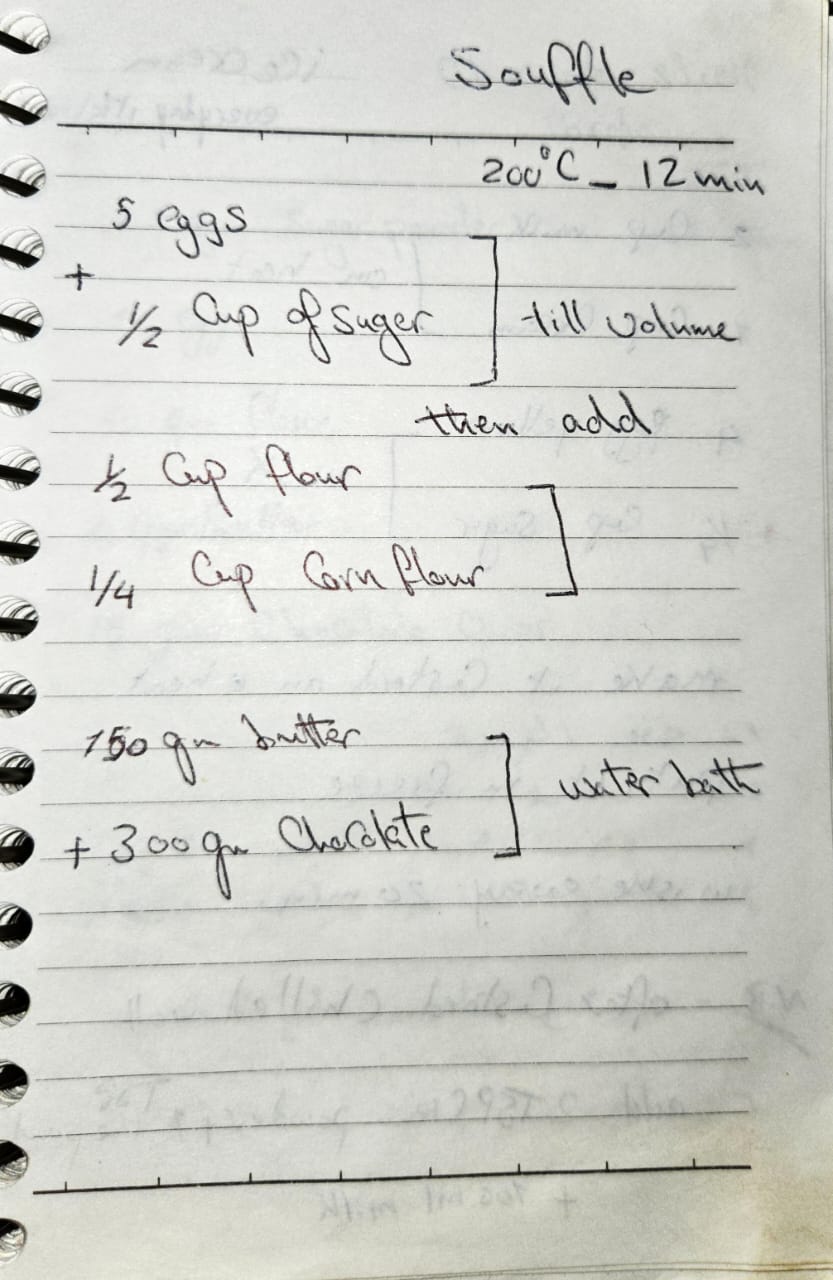 Souffle
200°C - 12 min
5 eggs
+
1/2 Cup of suger ] till volume
then add
1/2 Cup flour
1/4 Cup Corn flour ]
150 gm butter
+ 300 gm Chocolate ] water bath